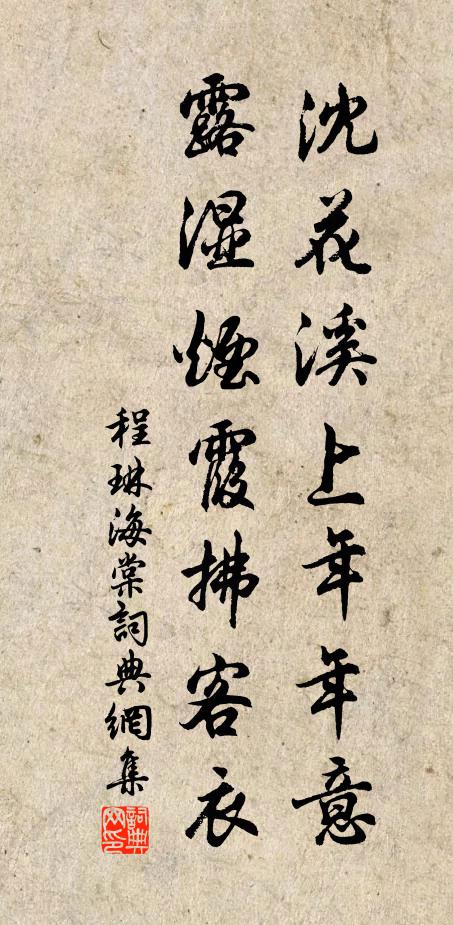 沈花溪上年年意
露湿煙霞拂客衣
程琳海棠詞典網集
詞典网印